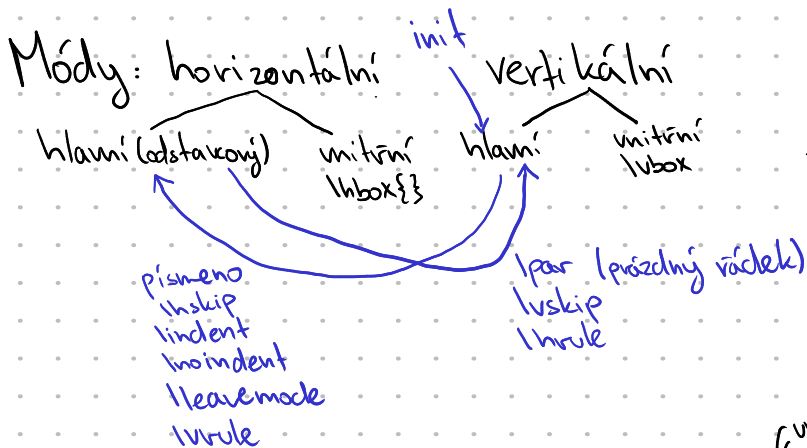 init
Módy: horizontální vertikální
hlavní (odstavcový) vnitřní hlavní vnitřní
\hbox{} \vbox
písmeno
\hskip
\indent
\noindent
\leavemode
\vrule
\par (prázdný řádek)
\vskip
\hrule